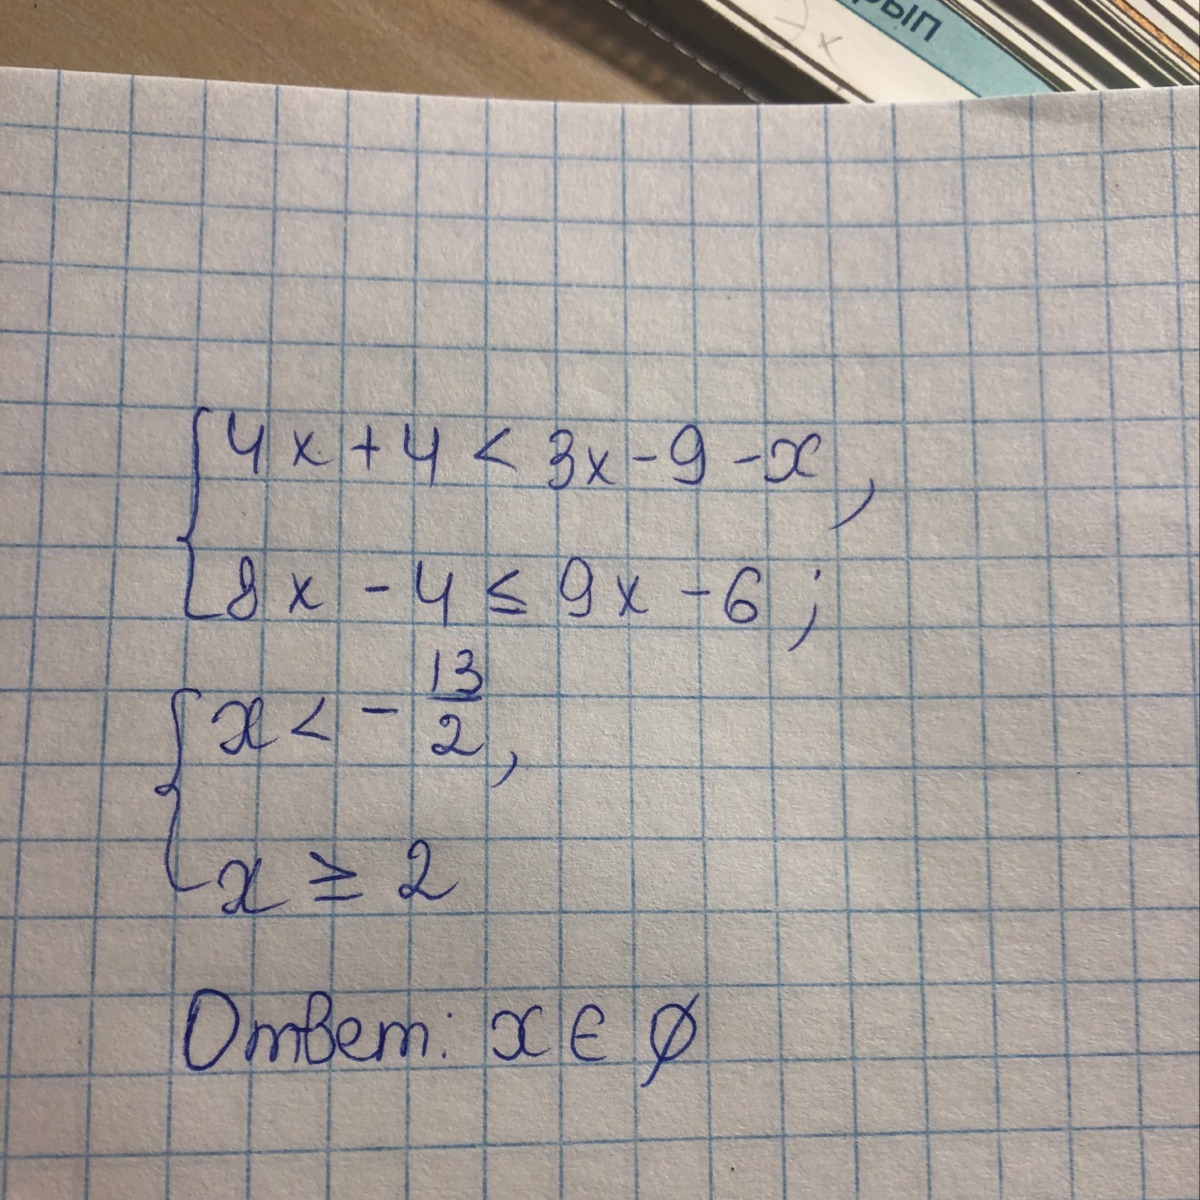 рып
x
{ 4x + 4 < 3x - 9 - x,
8x - 4 ≤ 9x - 6;
{ x < - 13/2,
x ≥ 2
Ответ: x ∈ ∅